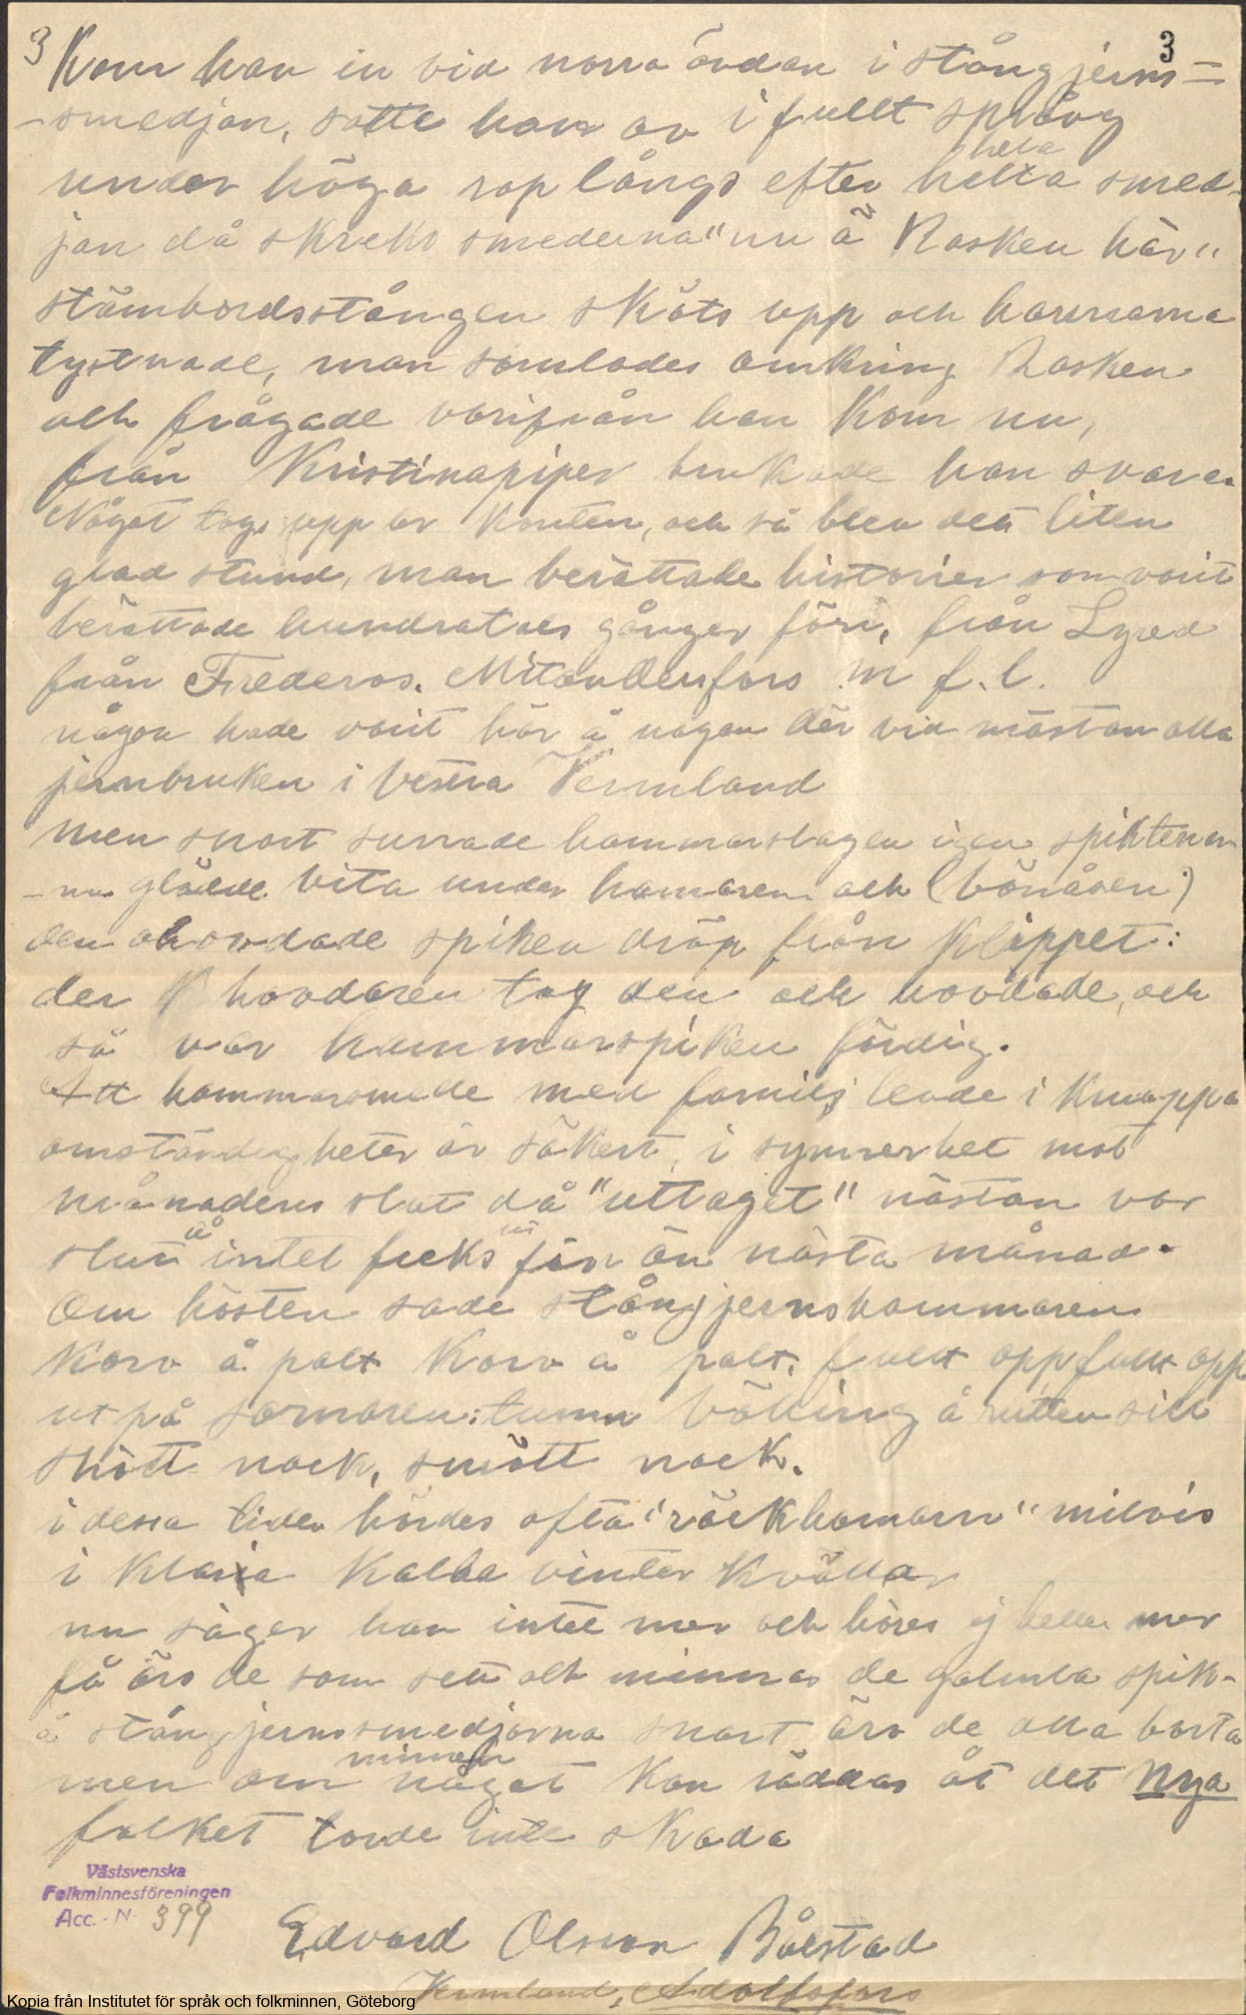 3 3
Kom han in vid norra ändan i stångjerns=
-smedjan, satte han av i fullt språng
hela
under höga rop långs efter hela smed-
jan då skreko smederna "nu ä Rasken här"
stämbordsstången sköts upp och hamrarna
tystnade, man samlades omkring Rasken
och frågade varifrån han kom nu,
från Kristinapiper brukade han svara.
Något togs upp ur konten, och så blev det liten
glad stund, man berättade historier som varit
berättade hundratals gånger förr, från Lyed
från Frederos. Mitandersfors m f.l.
någon hade varit här å någon där vid nästan alla
jernbruken i vestra Vermland
men snart surrade hammarslagen igen spiktenn-
-na glödde vita under hamaren och (bönåsen)
den ohovdade spiken dröp från klippet:
der hovdaren tog den och hovdade, och
så var hammarspiken färdig.
Att hammarsmede med familj levde i knappa
omständigheter är säkert, i synnerhet mot
månadens slut då "uttaget" nästan var
slut å intet feeks in förr än nästa månad.
Om hösten sade stångjernshammaren
Korv å palt Korv å palt, fullt opp fullt opp
ut på sommaren: tunn välling å rutten sill
skött nack, smått nack.
i dessa tider hördes ofta "räckhamarn" milvis
i klara kalla vinter kvällar
nu säger han intet mer och höres ej heller mer
få äro de som sett och minnas de gamla spik-
å stångjernssmedjorna snart äro de alla borta
minnen
men om något kan räddas åt det nya
folket torde inte skada
Västsvenska
Folkminnesföreningen
Acc. - N 399
Edvard Olsson Bålstad
Vermland, Adolfsfors
Kopia från Institutet för språk och folkminnen, Göteborg